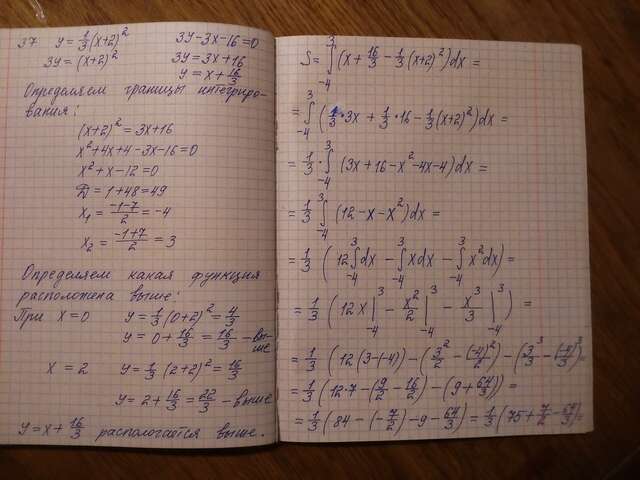 37 y = 1/3 (x+2)² 3y-3x-16=0
3y = (x+2)² 3y = 3x+16
y = x + 16/3
Определяем границы интегриро-
вания:
(x+2)² = 3x+16
x²+4x+4-3x-16=0
x²+x-12=0
D = 1+48=49
x₁ = (-1-7)/2 = -4
x₂ = (-1+7)/2 = 3
Определяем какая функция
расположена выше:
При x=0 y = 1/3 (0+2)² = 4/3
y = 0 + 16/3 = 16/3 - вы-
ше
x = 2 y = 1/3 (2+2)² = 16/3
y = 2 + 16/3 = 22/3 - выше
y = x + 16/3 распологается выше.
S = ∫₋₄³ (x + 16/3 - 1/3 (x+2)²) dx =
= ∫₋₄³ (1/3 · 3x + 1/3 · 16 - 1/3 (x+2)²) dx =
= 1/3 · ∫₋₄³ (3x + 16 - x² - 4x - 4) dx =
= 1/3 ∫₋₄³ (12 - x - x²) dx =
= 1/3 (12 ∫₋₄³ dx - ∫₋₄³ x dx - ∫₋₄³ x² dx) =
= 1/3 (12x |₋₄³ - x²/2 |₋₄³ - x³/3 |₋₄³) =
= 1/3 (12 (3-(-4)) - (3²/2 - (-4)²/2) - (3³/3 - (-4)³/3) =
= 1/3 (12·7 - (9/2 - 16/2) - (9 + 64/3)) =
= 1/3 (84 - (-7/2) - 9 - 64/3) = 1/3 (75 + 7/2 - 64/3) =